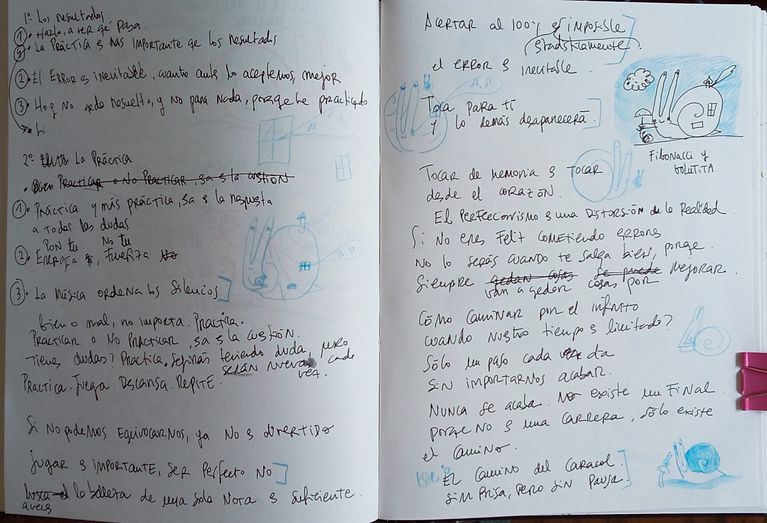 1º Los resultados:
① Hazlo, a ver qe pasa
④ La Práctica s mas importante qe los resultados
② El Error s inevitable, cuanto antes lo aceptemos, mejor
③ Hoy no
y no para nada, porqe he practicado
2º La Práctica
Practicar o No Practicar, esa s la cuestión
① Práctica y más práctica, esa s la respuesta
a todas las dudas
Pon tu No tu
② Energía, Fuerza
③ La Música ordena los Silencios
bien o mal, no importa. Practica.
Practicar o No Practicar, esa s la cuestión.
Tienes dudas? Practica, seguirás teniendo duda, pero
serán nuevas cada
Practica. Juega. Descansa. Repite. vez.
Si no podemos equivocarnos, ya no s divertido
Jugar s importante, ser perfecto no
la belleza de una sola nota s suficiente.
a veces
Acertar al 100% es imposible
Estadísticamente
el error s inevitable.
Toca para ti
y lo demás desaparecerá
Fibonacci y
Voletita
Tocar de memoria s tocar
desde el corazón.
El Perfeccionismo s una distorsión de la Realidad
Si no eres feliz cometiendo errores
No lo serás cuando te salga bien, porqe
Siempre qedan cosas se puede Mejorar.
van a qedar cosas por
Cómo caminar por el infinito
cuando nuestro tiempo s limitado?
Sólo un paso cada vez da
Sin importarnos acabar.
Nunca se acaba. No existe un final
porqe no s una carrera, sólo existe
el camino.
El camino del caracol.
Sin prisa, pero sin pausa.